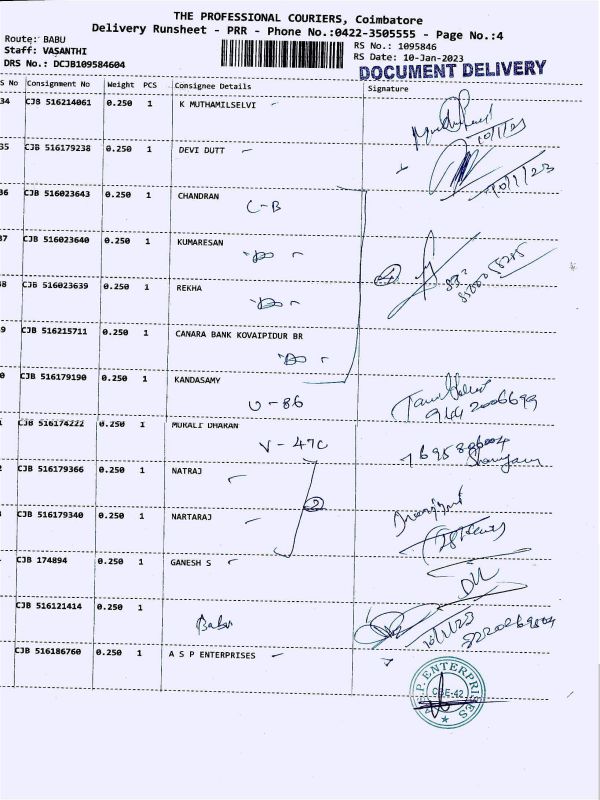 THE PROFESSIONAL COURIERS, Coimbatore
Delivery Runsheet - PRR - Phone No.:0422-3505555 - Page No.:4
Route: BABU
Staff: VASANTHI
DRS No.: DCJB109584604
RS No.: 1095846
RS Date: 10-Jan-2023
DOCUMENT DELIVERY
S No Consignment No Weight PCS Consignee Details Signature
34 CJB 516214061 0.250 1 K MUTHAMILSELVI
10/1/23
35 CJB 516179238 0.250 1 DEVI DUTT
10/1/23
36 CJB 516023643 0.250 1 CHANDRAN
C-B
37 CJB 516023640 0.250 1 KUMARESAN
Do
4
8 CJB 516023639 0.250 1 REKHA
Do
9 CJB 516215711 0.250 1 CANARA BANK KOVAIPIDUR BR
Do
0 CJB 516179190 0.250 1 KANDASAMY
U-86
944 2006699
CJB 516174222 0.250 1 MURALI DHARAN
V-47C
CJB 516179366 0.250 1 NATRAJ
2
CJB 516179340 0.250 1 NARTARAJ
CJB 174894 0.250 1 GANESH S
CJB 516121414 0.250 1
Babu
10/1/23
CJB 516186760 0.250 1 A S P ENTERPRISES
A.S.P. ENTERPRISES
CBE-42